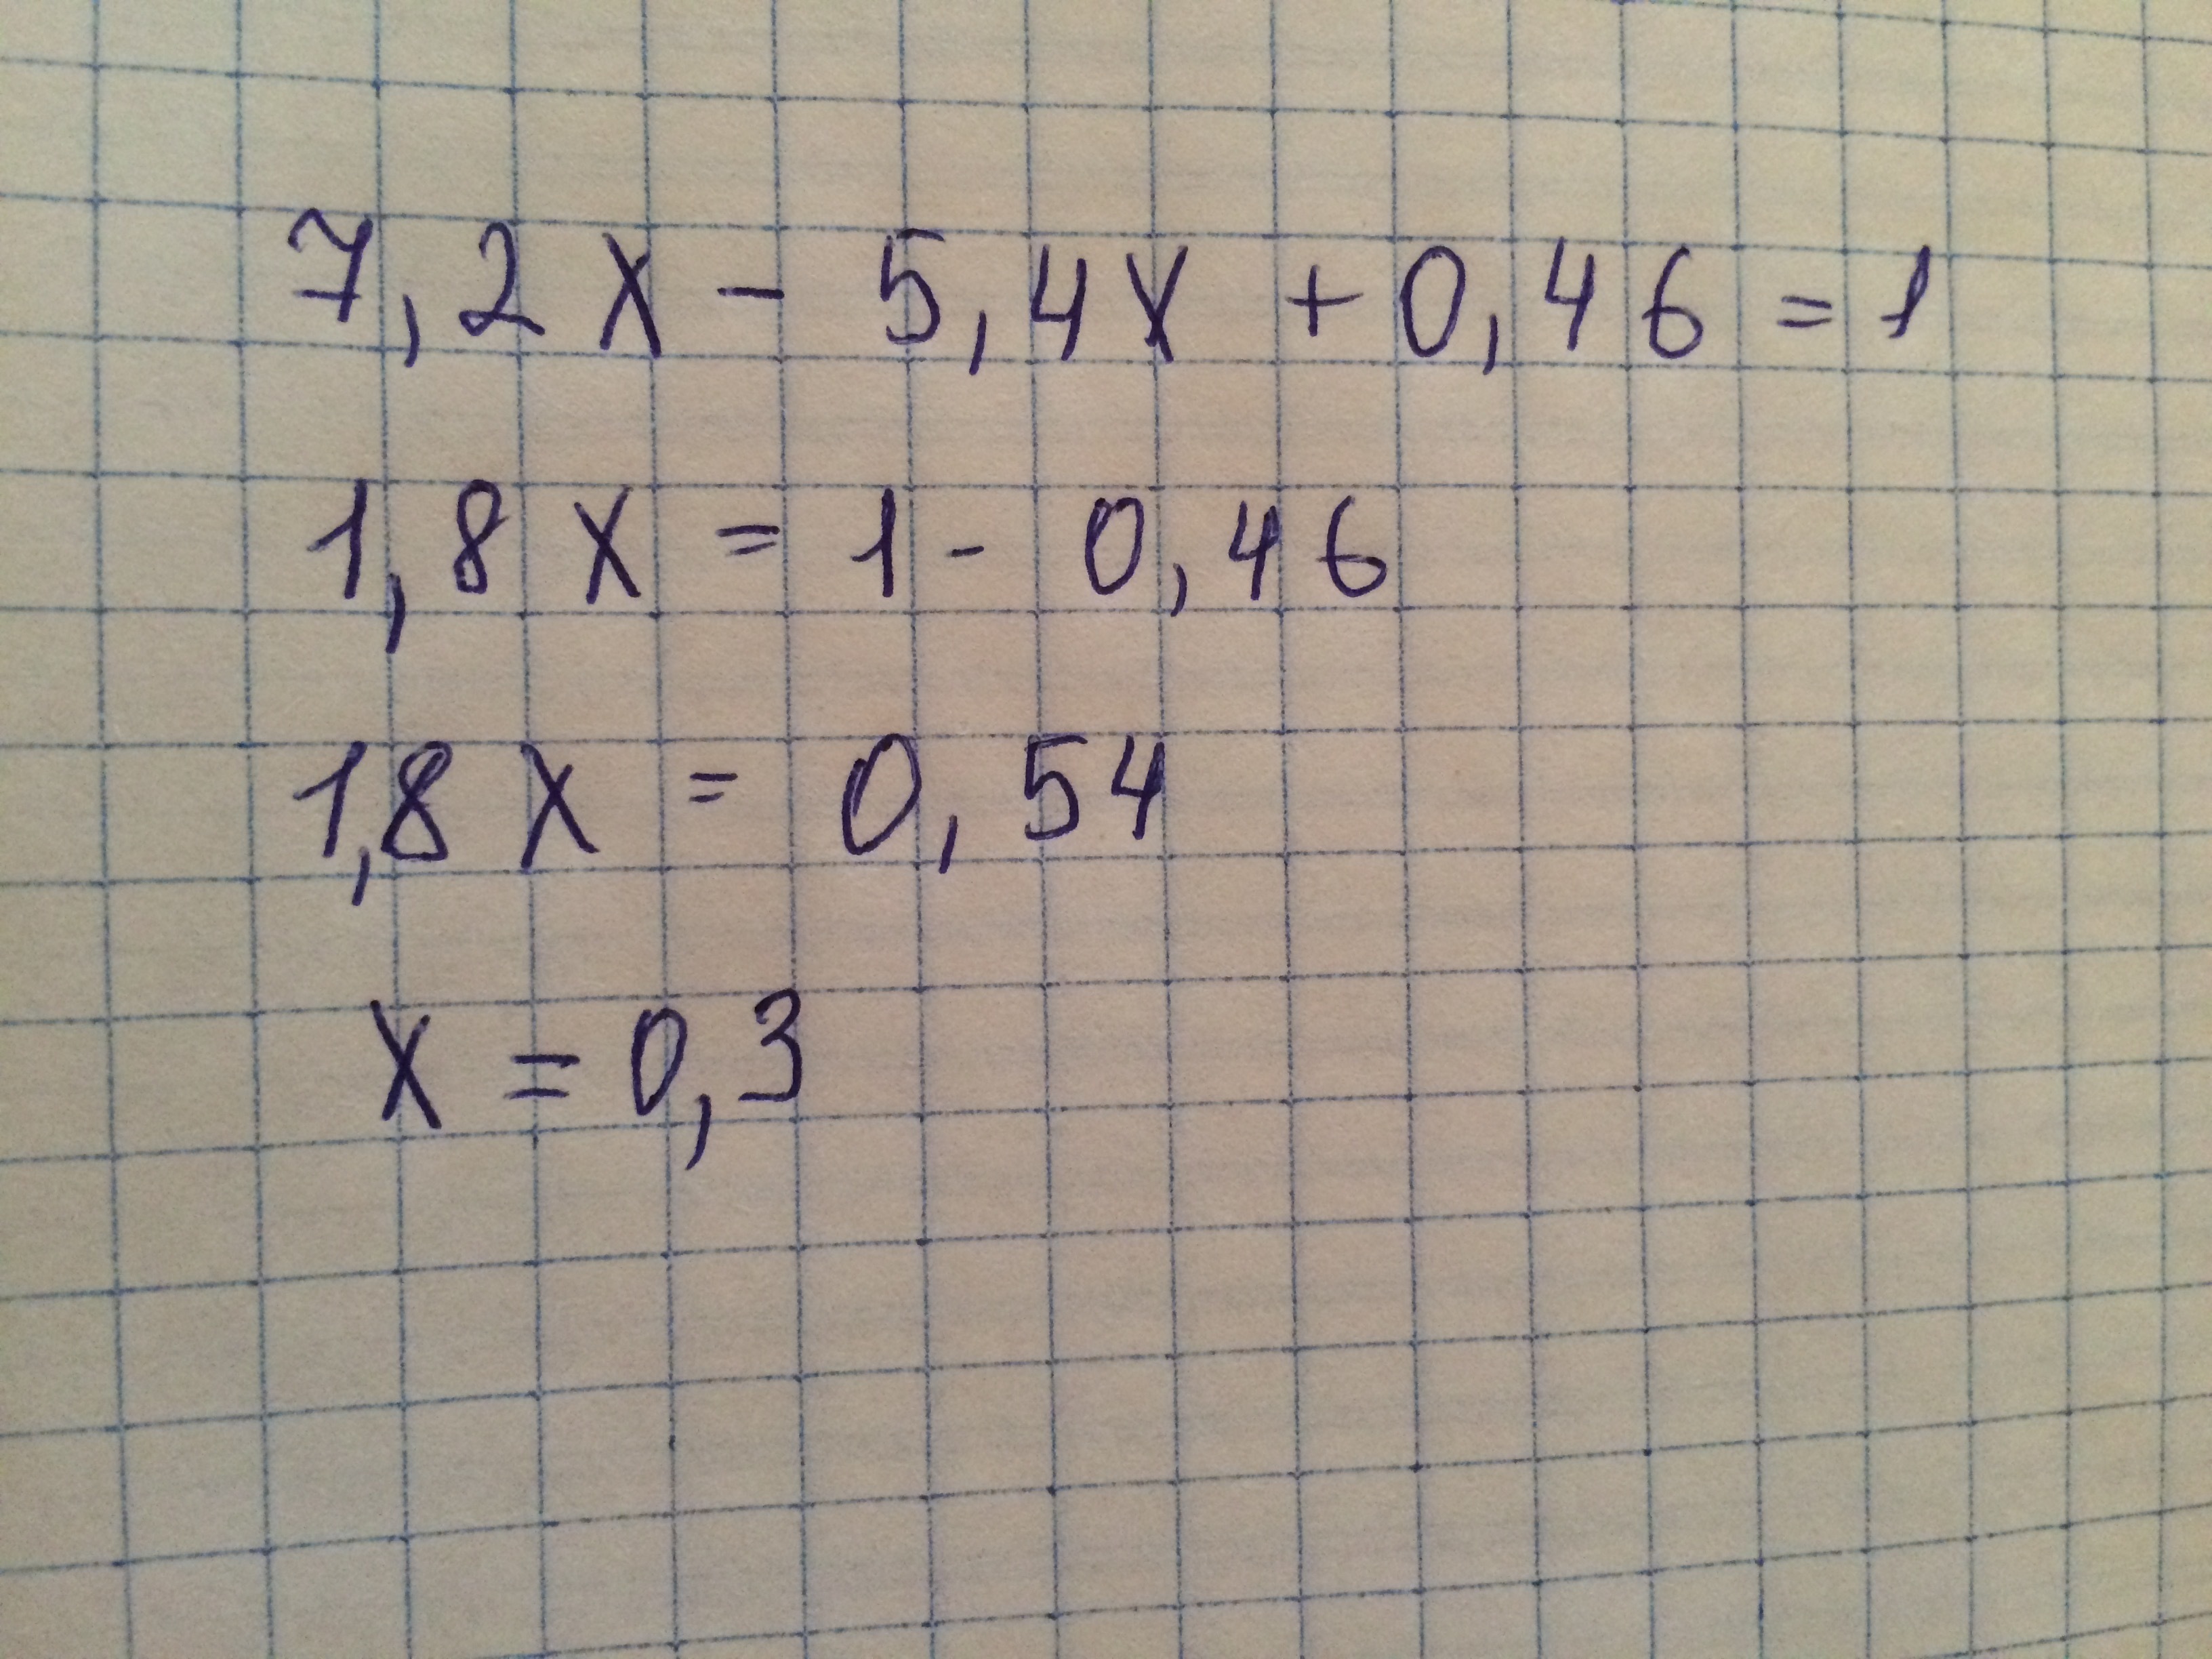 7,2x - 5,4x + 0,46 = 1
1,8x = 1 - 0,46
1,8x = 0,54
x = 0,3